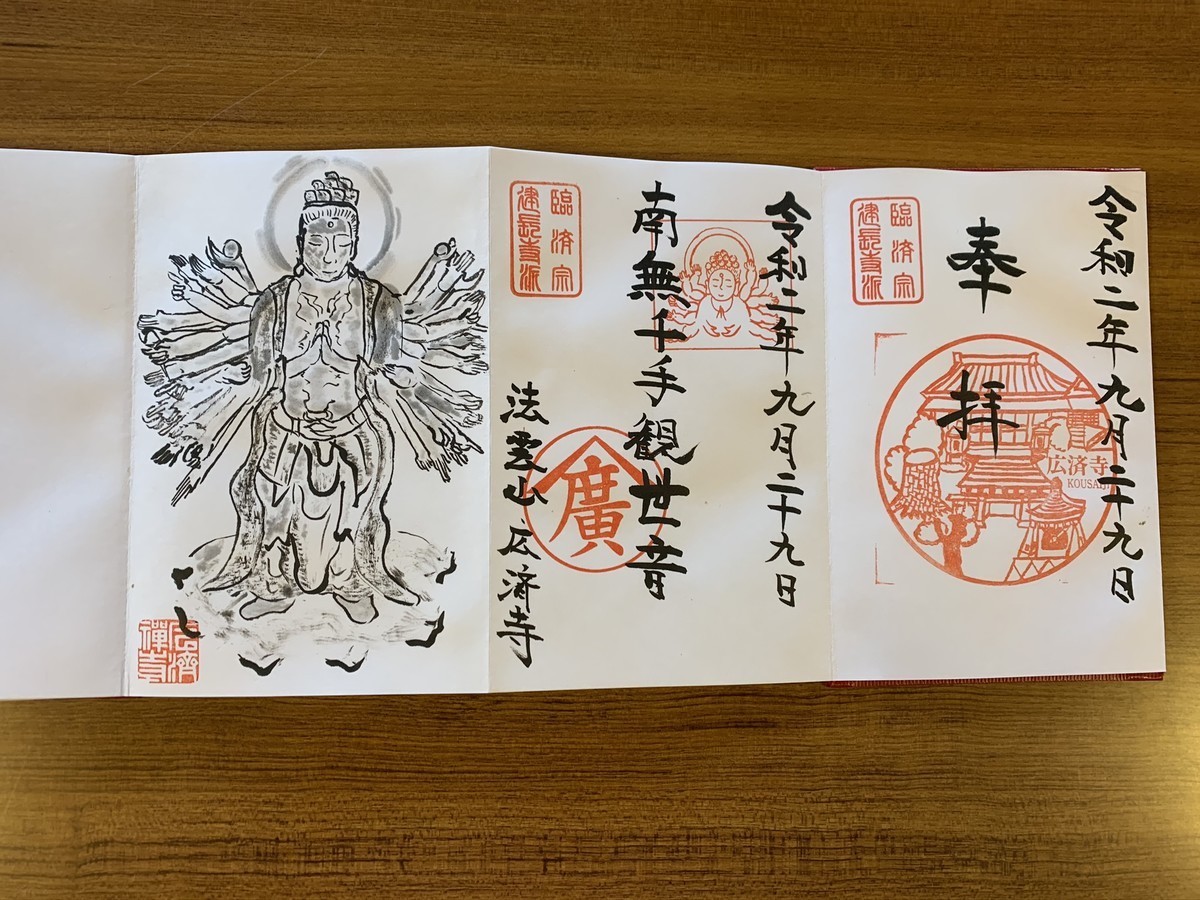 令和二年九月二十九日
奉拝
広済寺
臨済宗
建長寺派
令和二年九月二十九日
南無千手観世音
廣
法雲山 広済寺
臨済宗
建長寺派
広濟
禪寺